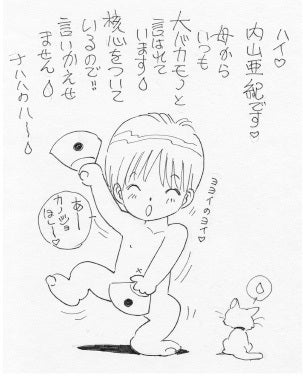 ハイ♡
内山亜紀です♡
母から
いつも
大バカモノと
言はれて
います♡
核心をついて
いるので!!
言いかえせ
ません♡
ナハハのハ〜♡
ヨヨイのヨイ♡
あー
カノジョ
ほしー♡